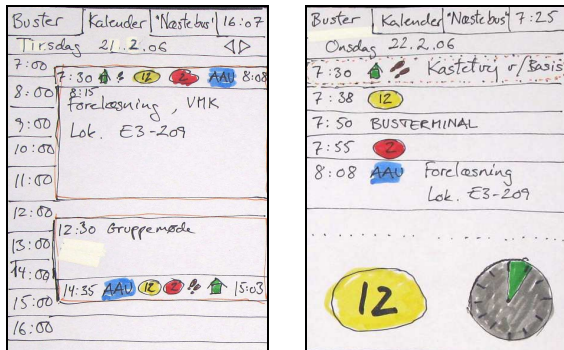 Buster Kalender "Næste bus" 16:07
Tirsdag 21.2.06
7:00
7:30 12 2 AAU 8:08
8:00 8:15
Forelæsning, VMK
9:00 Lok. E3-209
10:00
11:00
12:00
12:30 Gruppemøde
13:00
14:00
14:35 AAU 12 2 15:03
15:00
16:00
Buster Kalender "Næste bus" 7:25
Onsdag 22.2.06
7:30 Kastetvej v/Basis
7:38 12
7:50 BUSTERMINAL
7:55 2
8:08 AAU Forelæsning
Lok. E3-209
12